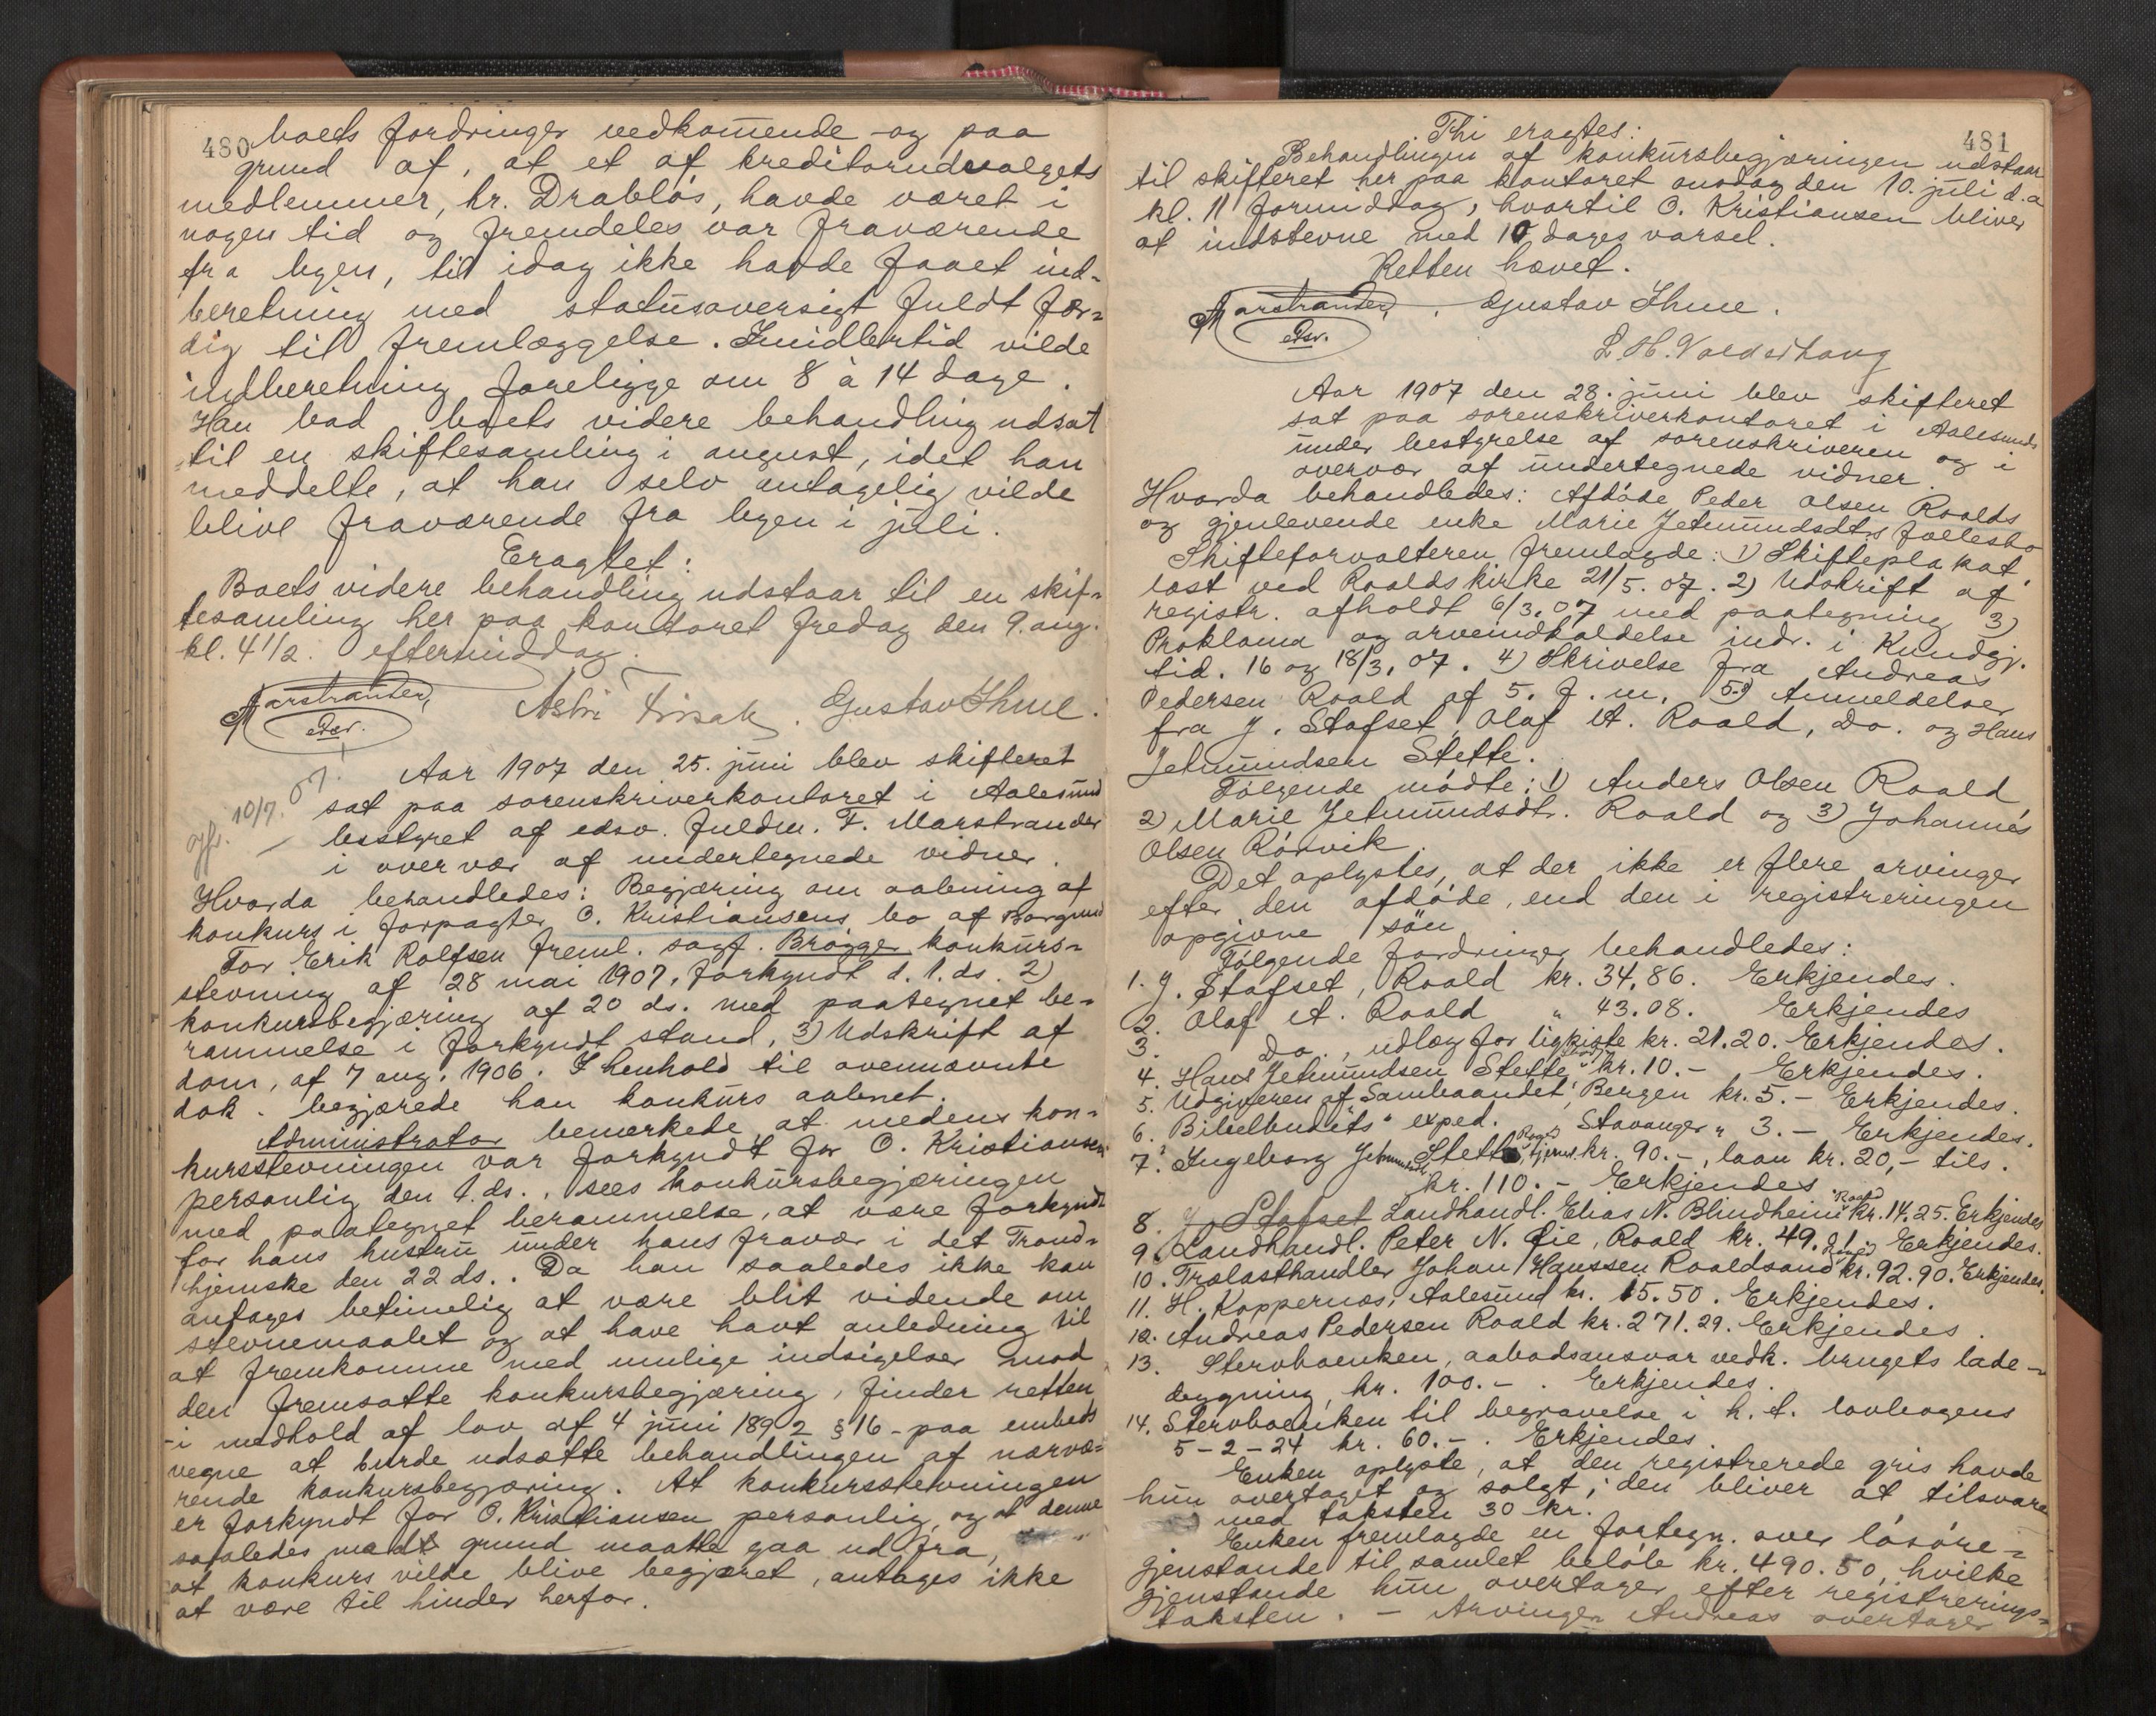 480
boets fordringer vedkommende - og paa
grund af, at et af kreditorudvalgets
medlemmer, hr. Drabløs, havde været i
nogen tid og fremdeles var fraværende
fra byen, til idag ikke havde faaet ind-
beretning med statusoversigt fuldt fær-
dig til fremlæggelse. Imidlertid vilde
indberetning foreligge om 8 à 14 dage.
Han bad boets videre behandling udsat
til en skiftesamling i august, idet han
meddelte, at han selv antagelig vilde
blive fraværende fra byen i juli.
Eragtet:
Boets videre behandling udstaar til en skif-
tesamling her paa kontoret fredag den 9. aug.
kl. 4 1/2. eftermiddag.
Marstrander, Astri Gustav Thue.
edsv.
Aar 1907 den 25. juni blev skifteret
sat paa sorenskriverkontoret i Aalesund
bestyret af edsv. fuldm. F. Marstrander
i overvær af undertegnede vidner.
10/7. 07.
Hvorda behandledes: Begjæring om aabning af
konkurs i forpagter O. Kristiansens bo af Borgund
For Erik Rolfsen freml. sagf. Brøgger konkurs-
stevning af 28 mai 1907, forkyndt d. 1. ds. 2)
konkursbegjæring af 20 ds. med paategnet be-
rammelse i forkyndt stand, 3) Udskrift af
dom, af 7 aug. 1906. I henhold til ovennævnte
dok. begjærede han konkurs aabnet.
Administrator bemerkede, at medens kon-
kursstevningen var forkyndt for O. Kristiansen
personlig den 1. ds., sees konkursbegjæringen
med paategnet berammelse, at være forkyndt
for hans hustru under hans fravær i det Trond-
hjemske den 22 ds.. Da han saaledes ikke kan
antages betimelig at være blit vidende om
stevnemaalet og at have havt anledning til
at fremkomme med mulige indsigelser mod
den fremsatte konkursbegjæring, finder retten
- i medhold af lov af 4 juni 1892 § 16 - paa embeds
vegne at burde udsætte behandlingen af nærvæ-
rende konkursbegjæring. At konkursstevningen
er forkyndt for O. Kristiansen personlig, og at denne
saaledes med grund maatte gaa ud fra,
at konkurs vilde blive begjæret, antages ikke
at være til hinder herfor.
481
Thi eragtes:
Behandlingen af konkursbegjæringen udstaar
til skifteret her paa kontoret onsdag den 10. juli d.a.
kl. 11 formiddag, hvortil O. Kristiansen bliver
at indstevne med 10 dages varsel.
Retten hævet.
Marstrander, Gustav Thue.
edsv.
L. H. Valderhaug
Aar 1907 den 28. juni blev skifteret
sat paa sorenskriverkontoret i Aalesund
under bestyrelse af sorenskriveren og i
overvær af undertegnede vidner.
Hvorda behandledes: Afdøde Peder Olsen Roalds
og gjenlevende enke Marie Jetmundsdtrs fællesbo
Skifteforvalteren fremlagde: 1) Skifteplakat,
læst ved Roalds kirke 21/5. 07. 2) Udskrift af
registr. afholdt 6/3.07 med paategning 3)
Proklama og arveindkaldelse indr. i Kundgj.
tid. 16 og 18/3. 07. 4) Skrivelse fra Andreas
Pedersen Roald af 5. f. m. 5-9) Anmeldelser
fra J. Stafset, Olaf A. Roald, Do. og Hans
Jetmundsen Stette.
Følgende mødte: 1) Anders Olsen Roald,
2) Marie Jetmundsdtr. Roald og 3) Johannes
Olsen Rørvik.
Det oplystes, at der ikke er flere arvinger
efter den afdøde, end den i registreringen
opgivne søn.
Følgende fordringer behandledes:
1. J. Stafset, Roald kr. 34.86. Erkjendes.
2. Olaf A. Roald " 43.08. Erkjendes
3. Do., udlæg for ligkiste kr. 21.20. Erkjendes.
4. Hans Jetmundsen Stette kr. 10.- Erkjendes.
5. Udgiveren af "Sambaandet", Bergen kr. 5.- Erkjendes.
6. "Bibelbudets" exped. Stavanger " 3.- Erkjendes.
7. Ingeborg Jetmundsdtr Stette, tjenl. kr. 90.-, laan kr. 20,- tils.
kr. 110.- Erkjendes
8. J. Stafset Landhandl. Elias N. Blindheim Roald kr. 14.25. Erkjendes
9. Landhandl. Peter N. Gie, Roald kr. 49.21. Erkjendes.
10. Trælasthandler Johan Hanssen Roaldsand kr. 92.90. Erkjendes.
11. H. Koppernæs, Aalesund kr. 15.50. Erkjendes.
12. Andreas Pedersen Roald kr. 271.29. Erkjendes.
13. Stervboenken, aabodsansvar vedk. brugets lade-
bygning, kr. 100.-. Erkjendes.
14. Stervboenken til begravelse i h. t. lovbogens
5-2-24 kr. 60.-. Erkjendes.
Enken oplyste, at den registrerede gris havde
hun overtaget og solgt; den bliver at tilsvare
med taksten 30 kr.
Enken fremlagde en fortegn. over løsøre-
gjenstande til samlet beløb kr. 490.50, hvilke
gjenstande hun overtager efter registrerings-
taksten. - Arvingen Andreas overtager